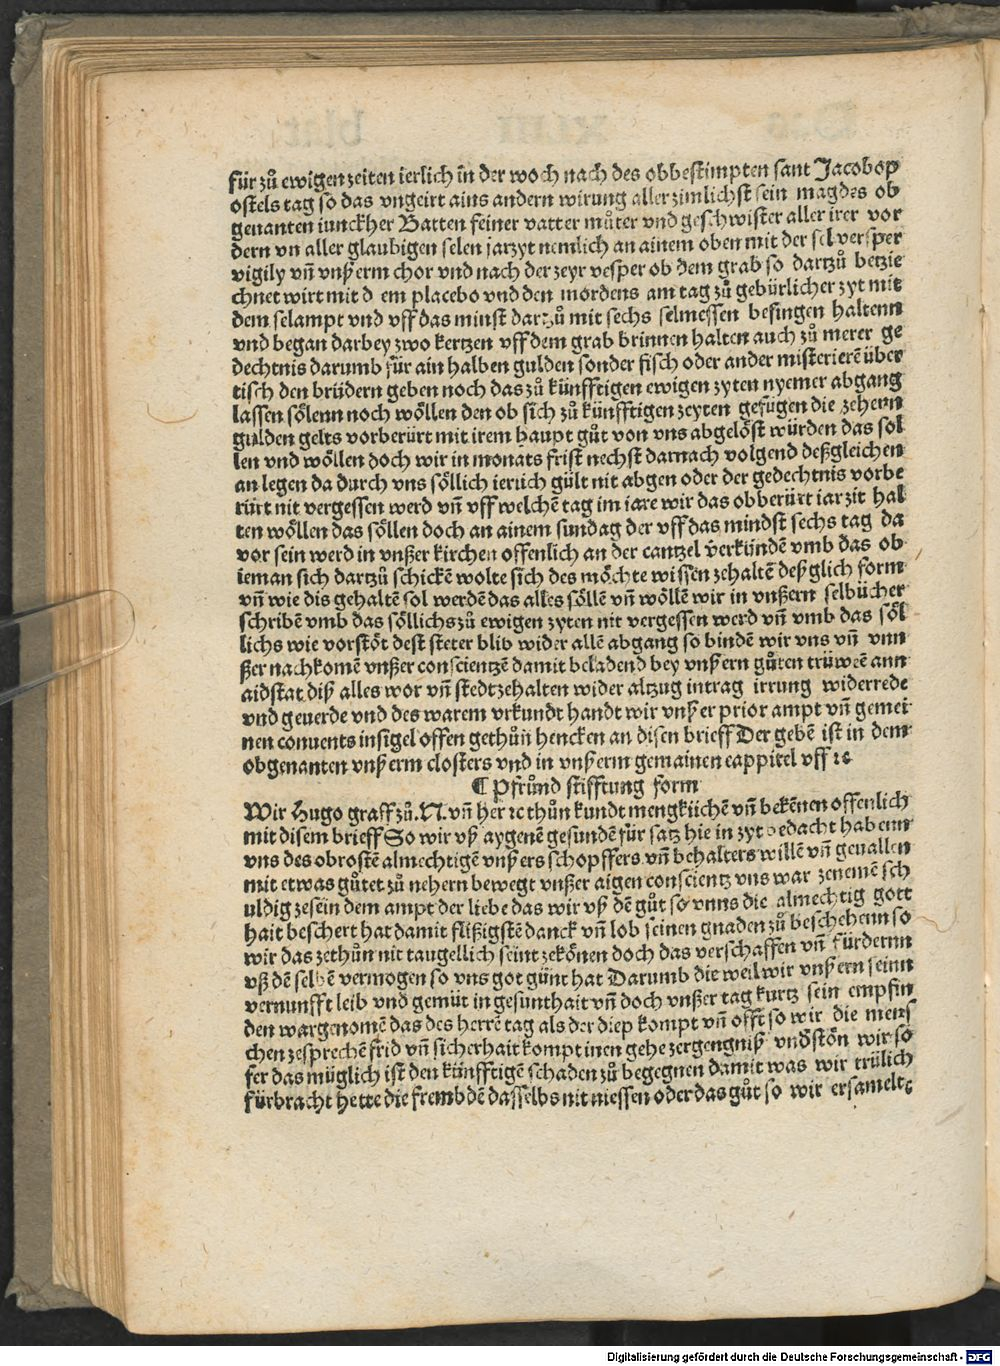 für zů ewigen zeiten ierlich in der woch nach des obbestimpten sant Jacobop
ostels tag so das vngeirt ains andern wirung aller zimlichst sein magdes ob
genanten iunckher Batten seiner vatter můter vnd geschwister aller irer vor
dern vn aller glaubigen selen jarzyt nemlich an ainem oben mit der sel versper
vigily vñ vnßerm chor vnd nach der zeyr vesper ob dem grab so dartzů betzie
chnet wirt mit d em placebo vnd den mordens am tag zů gebürlicher zyt mit
dem selampt vnd vff das minst dartzů mit sechs selmessen besingen haltenn
vnd began darbey zwo kertzen vff dem grab brinnen halten auch zů merer ge
dechtnis darumb für ain halben gulden sonder fisch oder ander misterierē über
tisch den brüdern geben noch das zů künfftigen ewigen zyten nyemer abgang
lassen sölenn noch wöllen den ob sich zů künfftigen zeyten gefügen die zehenn
gulden gelts vorberürt mit irem haupt gůt von vns abgelöst würden das sol
len vnd wöllen doch wir in monats frist nechst darnach volgend deßgleichen
an legen da durch vns söllich ierlich gült nit abgen oder der gedechtnis vorbe
rürt nit vergessen werd vñ vff welchē tag im iare wir das obberürt iarzit hal
ten wöllen das söllen doch an ainem sundag der vff das mindst sechs tag da
vor sein werd in vnßer kirchen offenlich an der cantzel verkündē vmb das ob
ieman sich dartzů schickē wolte sich des möchte wissen zehaltē deßglich form
vñ wie dis gehaltē sol werdē das alles söllē vñ wöllē wir in vnßern selbücher
schribē vmb das söllichs zů ewigen zyten nit vergessen werd vñ vmb das söl
lichs wie vorstöt dest steter blib wider allē abgang so bindē wir vns vñ vnn
ßer nachkomē vnßer conscientzē damit beladend bey vnßern gůten trüwen ann
aidstat diß alles wor vñ stedtzehalten wider altzug intrag irrung widerrede
vnd geuerde vnd des warem vrkundt handt wir vnßer prior ampt vñ gemei
nen conuents insigel offen gethůn hencken an disen brieff Der gebē ist in dem
obgenanten vnßerm closters vnd in vnßerm gemainen cappitel vff ⁊c
¶ Pfrůnd stifftung form
Wir Hugo graff zů. N. vñ her ⁊c thůn kundt mengklichē vñ bekēnen offenlich
mit disem brieff So wir vß aygenē gesundē für satz hie in zyt bedacht habenn
vns des obrostē almechtigē vnßers schopffers vñ behalters willē vñ geuallen
mit etwas gůtet zů nehern bewegt vnßer aigen conscientz vns war zenemē sch
uldig zesein dem ampt der liebe das wir vß dē gůt so vnns die almechtig gott
hait beschert hat damit flißigstē danck vñ lob seinen gnaden zů beschehenn so
wir das zethůn nit taugellich seint zekönen doch das verschaffen vñ fürdernn
vß dē selbē vermogen so vns got günt hat Darumb die weil wir vnßern seinn
vernunfft leib vnd gemüt in gesunthait vñ doch vnßer tag kurtz sein empfin
den wargenomē das des herrē tag als der diep kompt vñ offt so wir die mens
chen zesprechē frid vñ sicherhait kompt inen gehe zergengniß vndstön wir so
fer das müglich ist den künfftigē schaden zů begegnen damit was wir trülich
fürbracht hette die frembdē dasselbs nit niessen oder das gůt so wir ersamelte
Digitalisierung gefördert durch die Deutsche Forschungsgemeinschaft - DFG